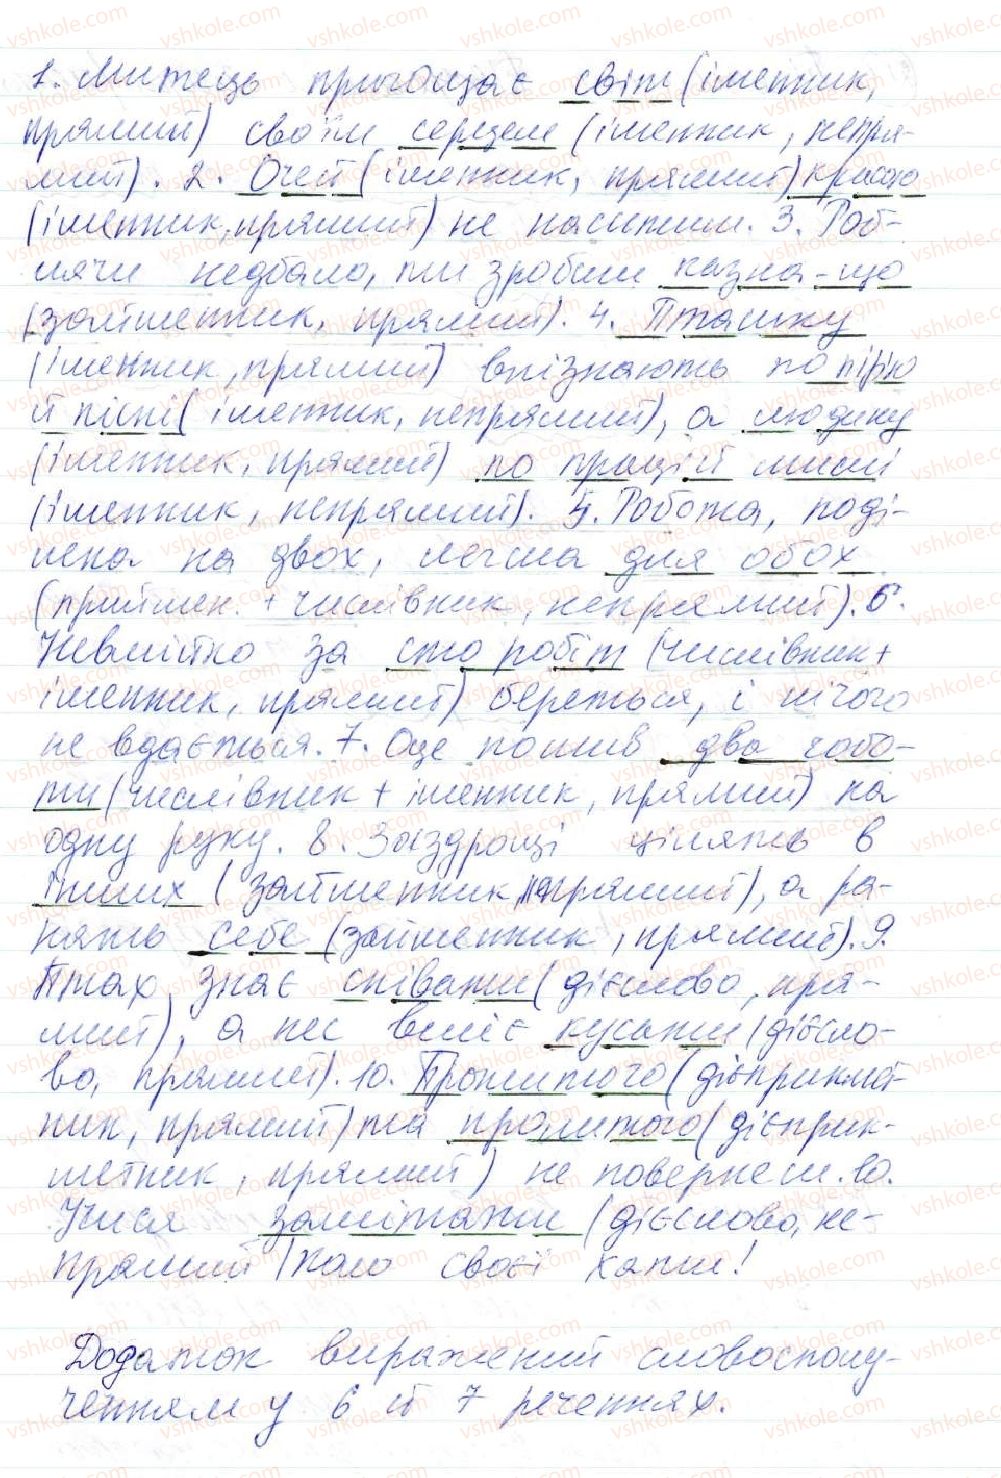 1. Митець пригощає світ (іменник,
прямий) своїм серцем (іменник, непря-
мий). 2. Очей (іменник, прямий) красою
(іменник, прямий) не наситиш. 3. Роб-
лячи недбало, ти зробиш казна-що
(займенник, прямий). 4. Пташку
(іменник, прямий) впізнають по пір'ю
й пісні (іменник, непрямий), а людину
(іменник, прямий) по праці й мислі
(іменник, непрямий). 5. Робота, поді-
лена на двох, легша для обох
(приймен. + числівник, непрямий). 6.
Невмітко за сто робіт (числівник +
іменник, прямий) береться, і нічого
не вдається. 7. Оце пошив два чобо-
ти (числівник + іменник, прямий) на
одну руку. 8. Заздрощі цілять в
інших (займенник, непрямий), а ра-
нять себе (займенник, прямий). 9.
Птах знає співати (дієслово, пря-
мий), а пес вміє кусати (дієсло-
во, прямий). 10. Прожитого (дієприкмет-
ник, прямий) та пролитого (дієприк-
метник, прямий) не повернеш. 10.
Учися замітати (дієслово, не-
прямий) коло своєї хати!
Додаток виражений словоспол-
ученням у 6 й 7 реченнях.